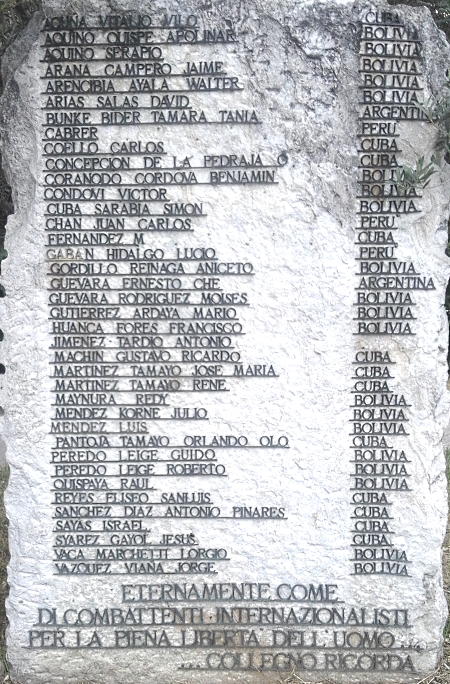 ACUNA VITALIO VILO CUBA
AQUINO QUISPE APOLINAR BOLIVIA
AQUINO SERAPIO BOLIVIA
ARANA CAMPERO JAIME BOLIVIA
ARENCIBIA AYALA WALTER BOLIVIA
ARIAS SALAS DAVID BOLIVIA
BUNKE BIDER TAMARA TANIA ARGENTIN
CABRER PERU
COELLO CARLOS CUBA
CONCEPCION DE LA PEDRAJA O CUBA
CORANODO CORDOVA BENJAMIN BOLIVIA
CONDOVI VICTOR BOLIVIA
CUBA SARABIA SIMON BOLIVIA
CHAN JUAN CARLOS PERU
FERNANDEZ M CUBA
GABAN HIDALGO LUCIO PERU
GORDILLO REINAGA ANICETO BOLIVIA
GUEVARA ERNESTO CHE ARGENTINA
GUEVARA RODRIGUEZ MOISES BOLIVIA
GUTIERREZ ARDAYA MARIO BOLIVIA
HUANCA FORES FRANCISCO BOLIVIA
JIMENEZ TARDIO ANTONIO
MACHIN GUSTAVO RICARDO CUBA
MARTINEZ TAMAYO JOSE MARIA CUBA
MARTINEZ TAMAYO RENE CUBA
MAYNURA REDY BOLIVIA
MENDEZ KORNE JULIO BOLIVIA
MENDEZ LUIS BOLIVIA
PANTOJA TAMAYO ORLANDO OLO CUBA
PEREDO LEIGE GUIDO BOLIVIA
PEREDO LEIGE ROBERTO BOLIVIA
QUISPAYA RAUL BOLIVIA
REYES ELISEO SANLUIS CUBA
SANCHEZ DIAZ ANTONIO PINARES CUBA
SAYAS ISRAEL CUBA
SYAREZ GAYOL JESUS CUBA
VACA MARCHETTI LORGIO BOLIVIA
VAZQUEZ VIANA JORGE BOLIVIA
ETERNAMENTE COME
DI COMBATTENTI INTERNAZIONALISTI
PER LA PIENA LIBERTA DELL'UOMO...
...COLLEGNO RICORDA